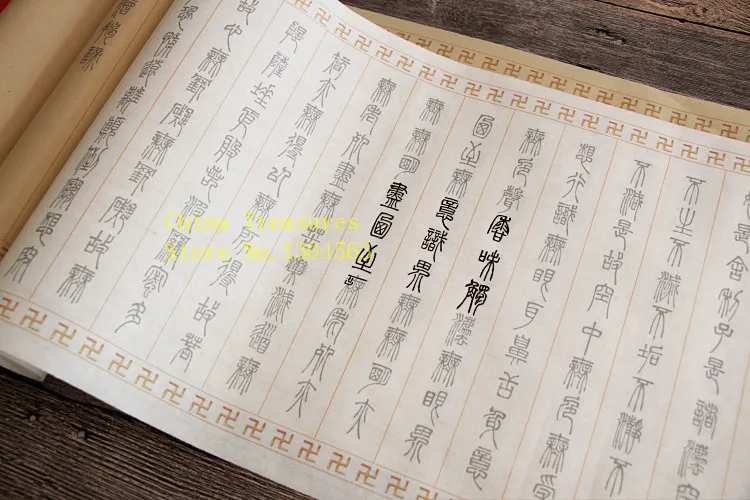 是舍利子是諸法空
不生不滅不垢不淨不
不減是故空中無色無受
想行識無眼耳鼻舌身意
無色聲香味觸法無眼界
乃至無意識界無無明亦
無無明盡乃至無老死亦
無老死盡無苦集滅道無
智亦無得以無所得故菩
提薩埵依般若波羅蜜多
故心無罣礙無罣礙故無
有恐怖遠離顛倒夢想究
China Treasures
Store No.1301562